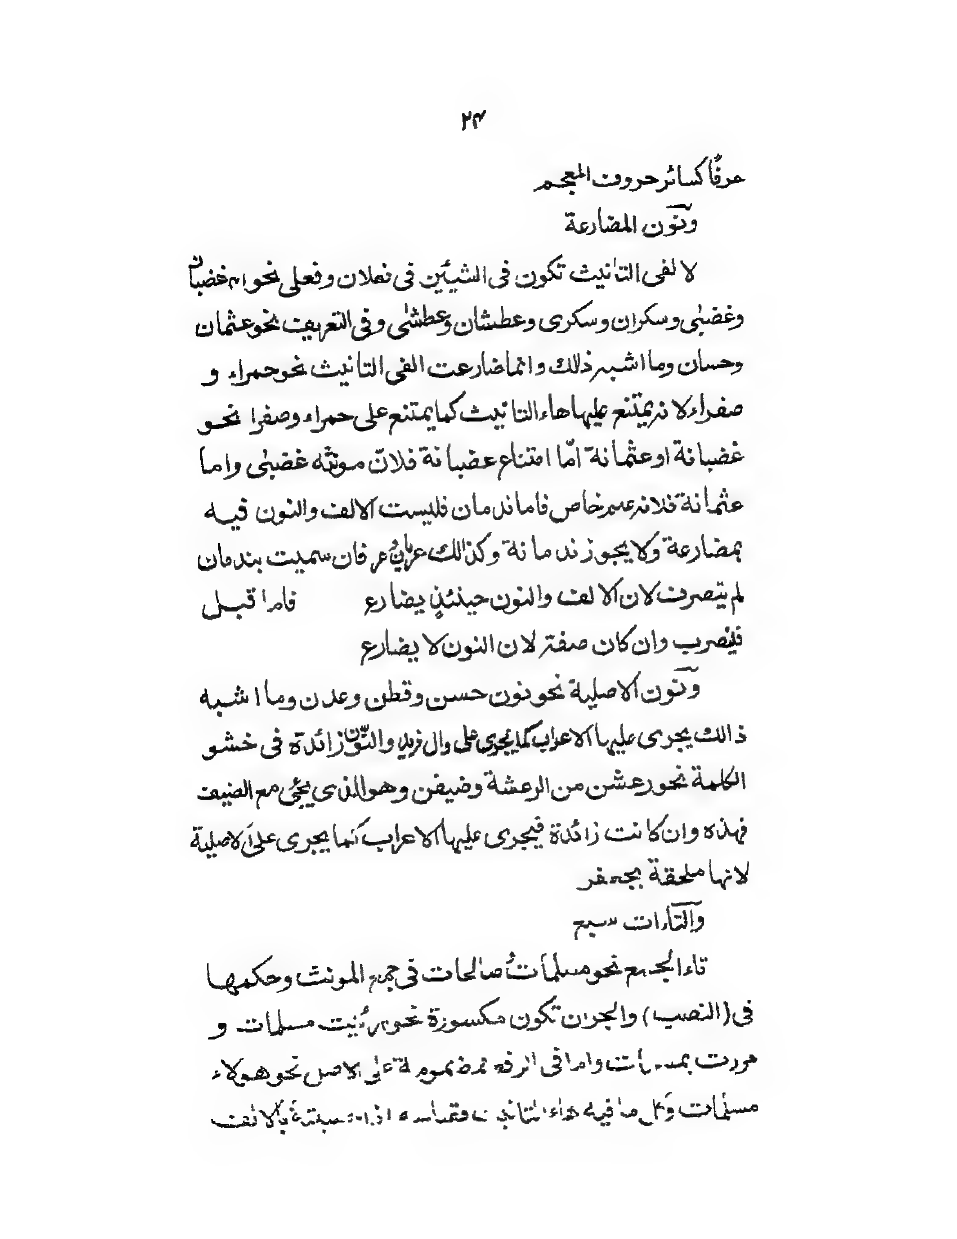 ٢٤
حرفًا كسائر حروف المعجم
ونون المضارعة
لالفى التانيث تكون فى الشيئين فى فعلان وفعلى نحو غضبان
وغضبٰى وسكران وسكرى وعطشان وعطشٰى وفى التعريف نحو عثمان
وحسان وما اشبه ذلك وانما ضارعت الفى التانيث نحو حمراء و
صفراء لانه يمتنع عليها هاء التانيث كما يمتنع على حمراء وصفرا نحو
غضبانة او عثمانة امّا امتناع غضبانة فلانّ مونثه غضبٰى واما
عثمانة فلانه اسم خاص فاما ندمان فليست الالف والنون فيه
بمضارعة ولا يجوز ندمانة وكذالك عريان وعرفان سميت بندمان
لم يتصرف لان الالف والنون حينئذٍ يضارع فاما قبل
فينصرب وان كان صفة لان النون لا يضارع
ونون الاصلية نحو نون حسن وقطن وعدن وما اشبه
ذالك يجرى عليها الاعراب كما يجرى على وال فريد والنون زائدة فى خشو
الكلمة نحو رعشن من الرعشة وضيفن وهو الذى يجئ مع الضيف
فهذه وان كانت زائدة فيجرى عليها الاعراب كما يجرى على الاصلية
لانها ملحقة بجعفر
والتاءات سبع
تاء الجمع نحو مسلمات صالحات فى جمع المونث وحكمها
فى (النصب) والجران تكون مكسوزة نحو رئيت مسلمات و
مررت بمسلمات واما فى الرفع مضمومة على الاصل نحو هولاء
مسلمات وكل ما فيه هاء التانيث بالالف